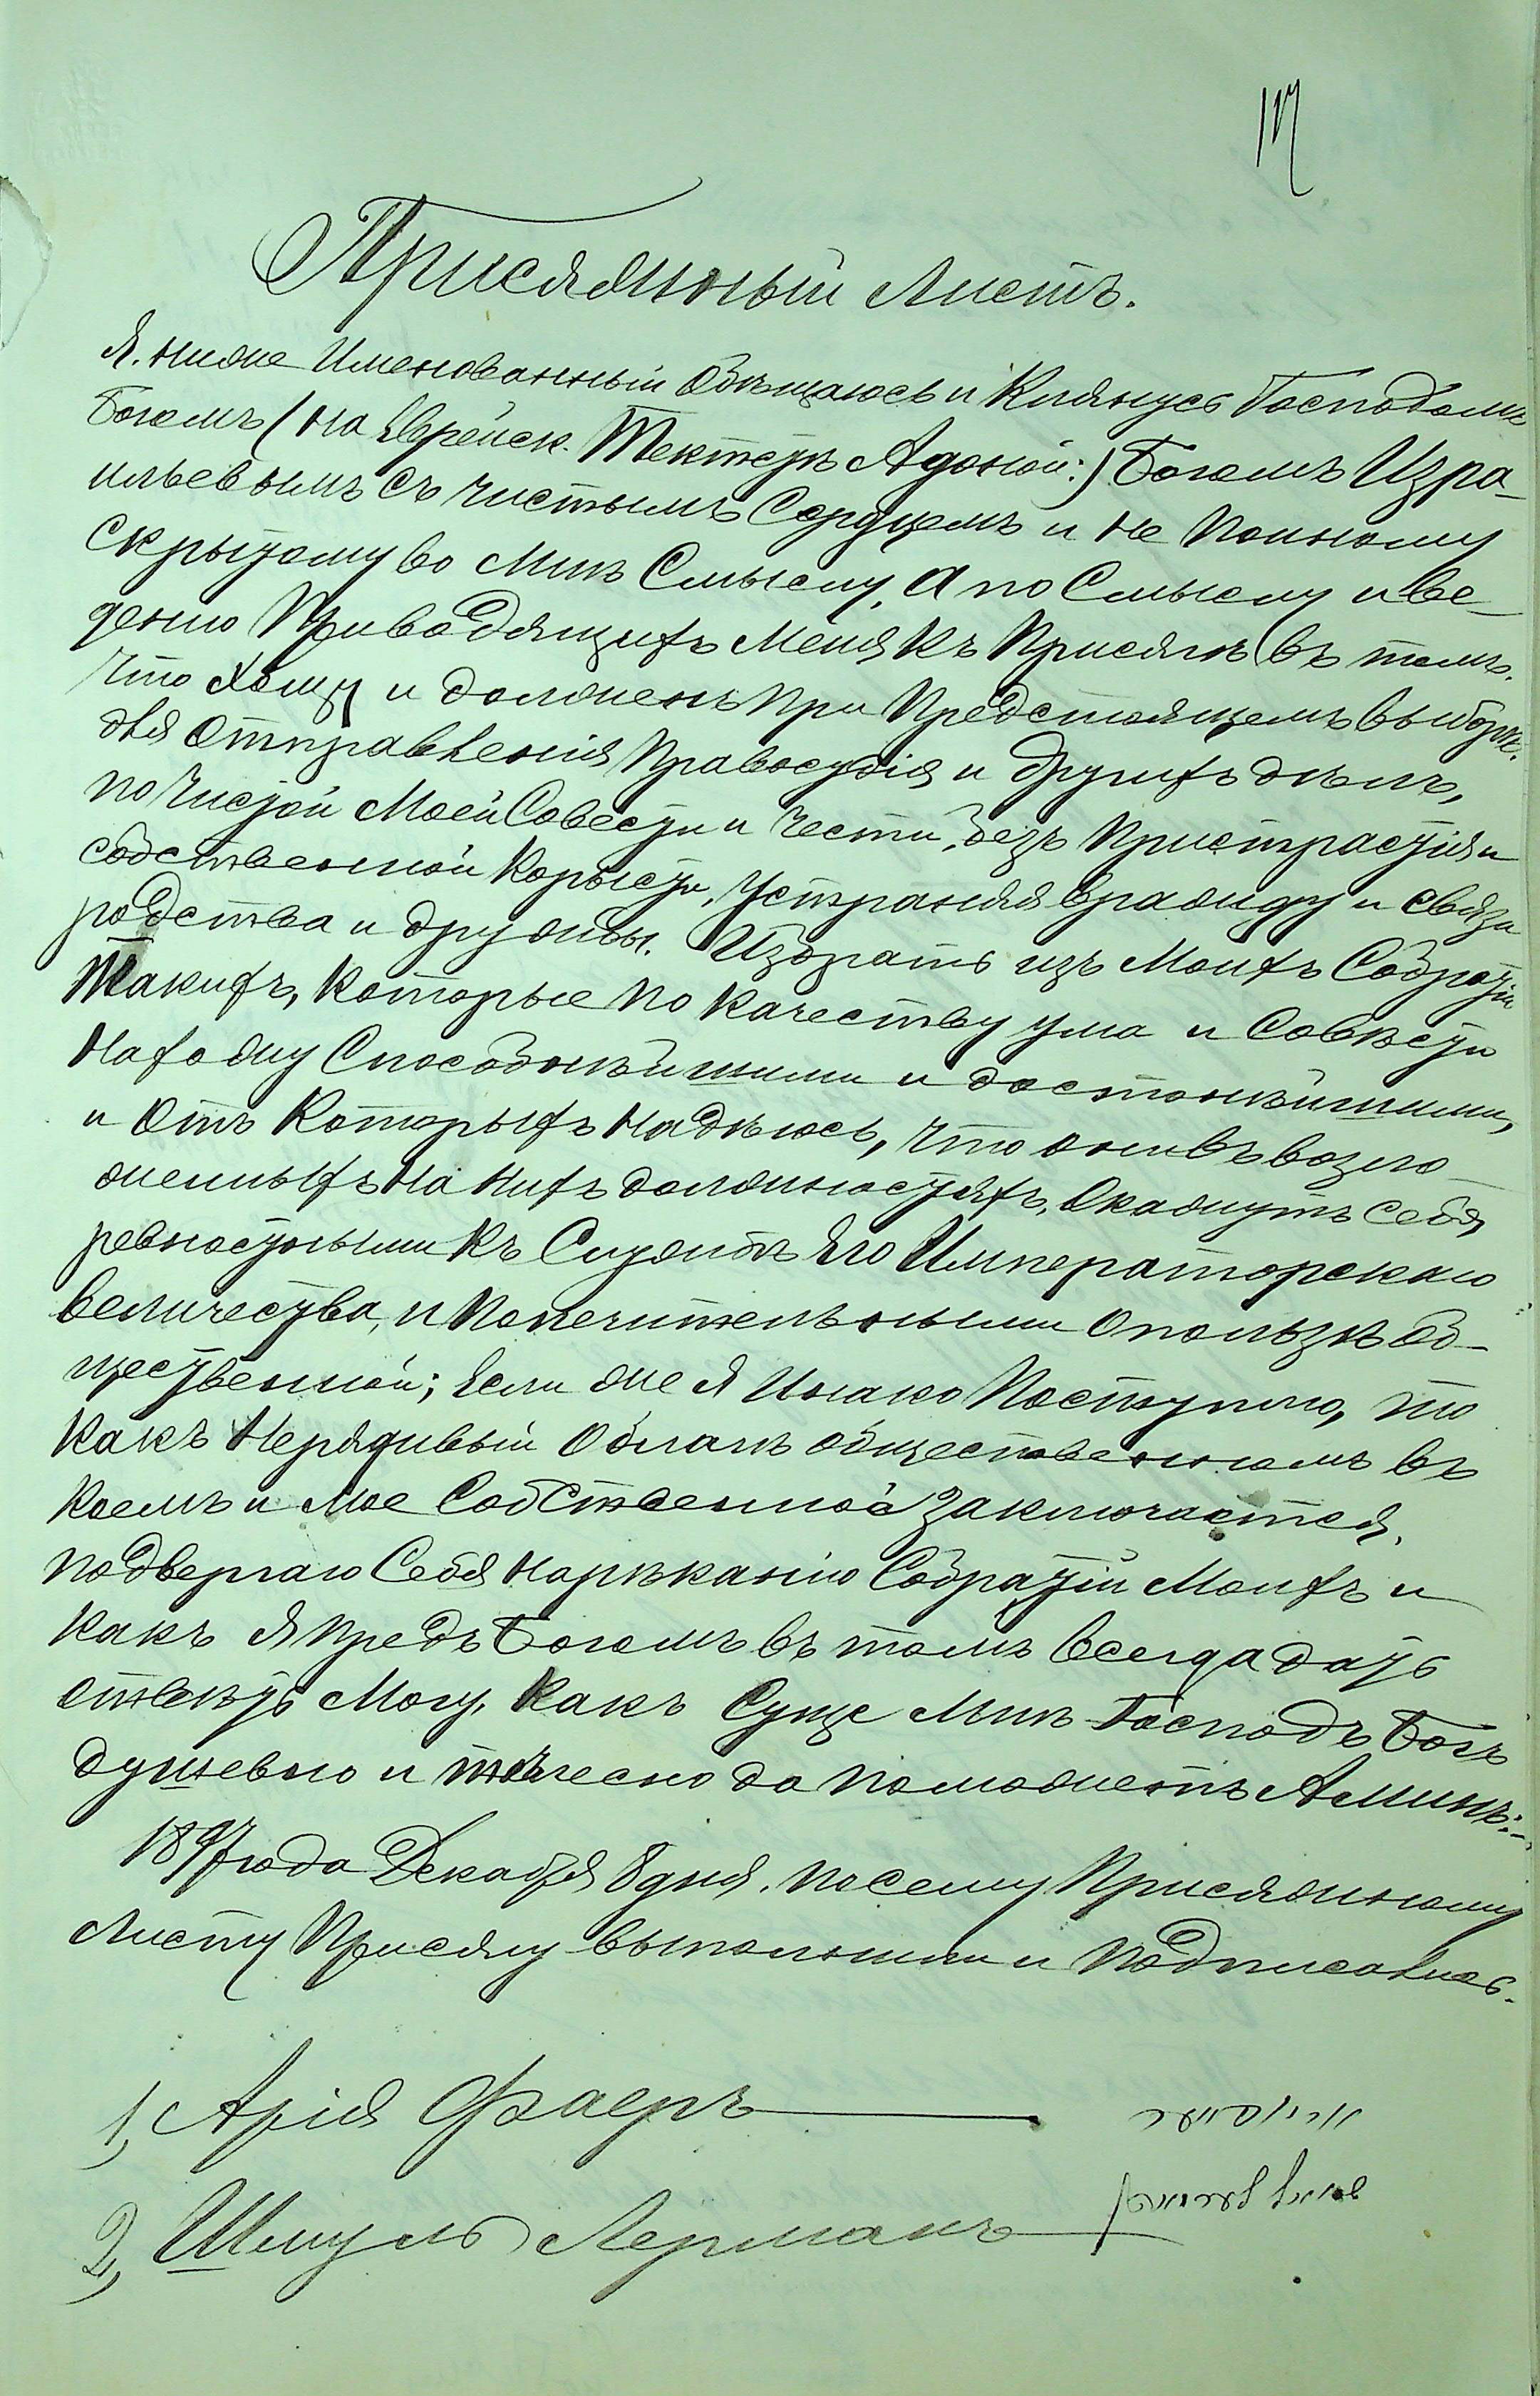 17
Присяжный Листъ.
Я. ниже Именованный Обѣщаюсь и Клянусь Господомъ
Богомъ (на Еврейск. Тектстѣ Адоной:) Богомъ Изра-
ильевымъ съ чистымъ Сердцемъ и не Поиному
Скрытому во Мнѣ Смыслу, А по Смыслу и Ве-
дению Приводящихъ Меня Къ Присягѣ въ томъ.
Что Хощу и долженъ При Предстоящемъ выборѣ.
для Отправленія Правосудія и другихъ дѣлъ,
по Чистой Моей Совести и Чести, безъ Пристрастія и
собственной Корысти, Устраняя вражду и связи
родства и дружбы. Избрать изъ Моихъ Собратій
Такихъ, Которые по Качеству ума и Совѣсти
Нахожу Способнѣйшими и достойнѣйшими,
и Отъ Которыхъ Надѣюсь, Что они въ возло-
женныхъ На Нихъ должностяхъ, Окажутъ Себя
ревностными Къ Службѣ Его Императорскаго
Величества, и Попечительными О пользѣ об-
щественной; Если же я Инако Поступлю, то
Какъ Нерядивый О благѣ общественномъ въ
Коемъ и мое Собственное Заключается,
подвергаю Себя Нарѣканію Собратій Моихъ и
Какъ я предъ Богомъ въ томъ всегда дать
отвѣтъ Могу, Какъ Суще Мнѣ Господь Богъ
душевно и телесно да поможетъ Аминь:-
1897 года Декабря 8 дня. По сему Присяжному
Листу Присягу выполнили и Подписались.
1, Арія Фаеръ
2, Шмуль Лерманъ